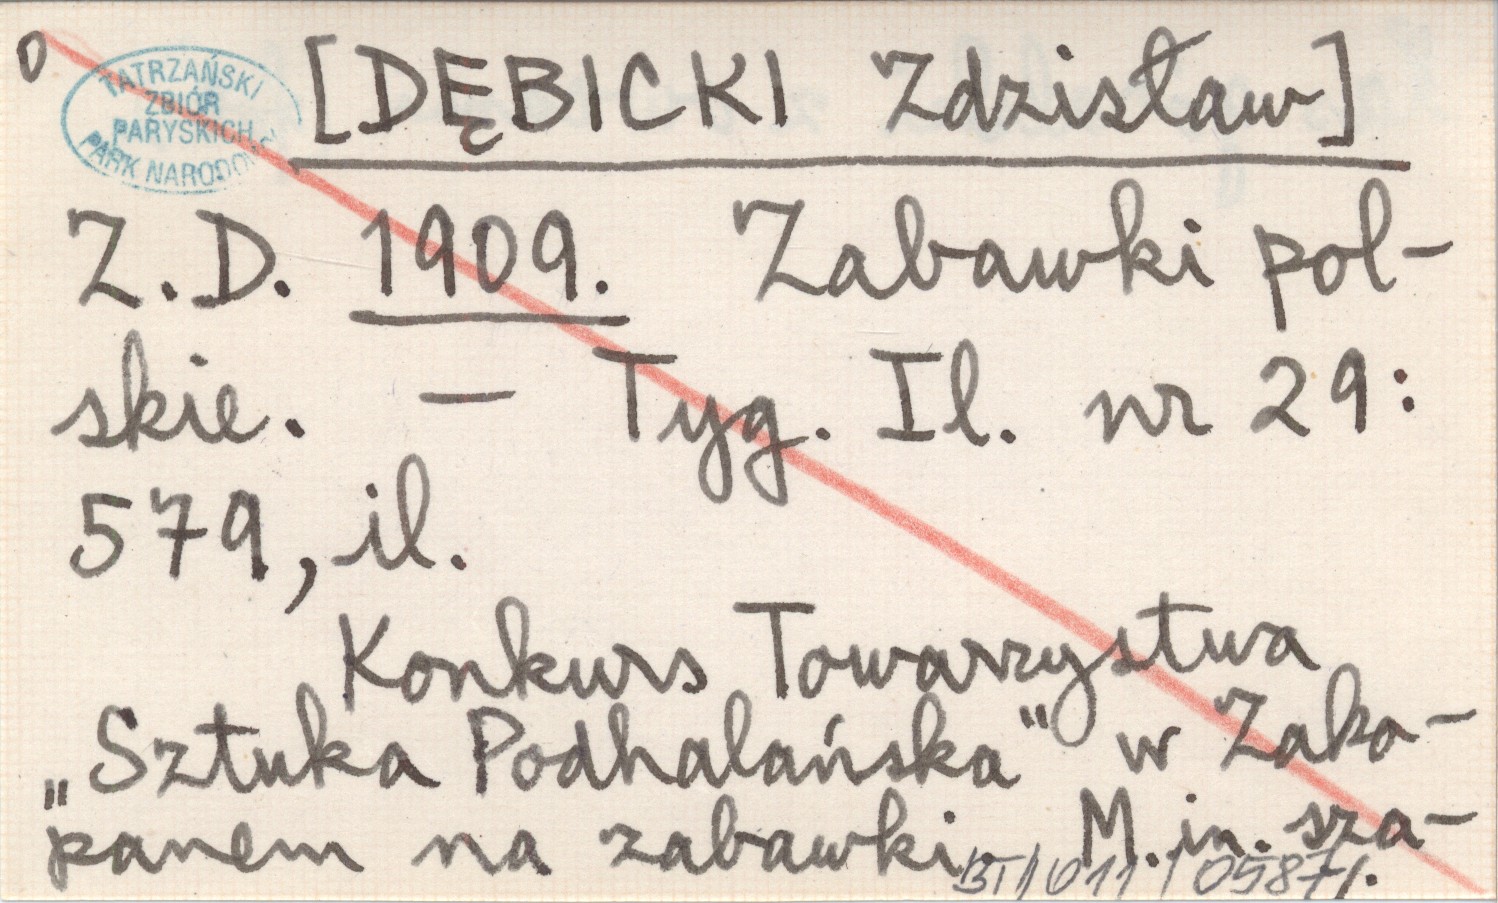 0
TATRZAŃSKI
ZBIÓR
PARYSKICH
PARK NARODOWY
[DĘBICKI Zdzisław]
Z.D. 1909. Zabawki pol-
skie. — Tyg. Il. nr 29:
579, il.
Konkurs Towarzystwa
„Sztuka Podhalańska" w Zako-
panem na zabawki. M.in. sza-
BT/011/05871.